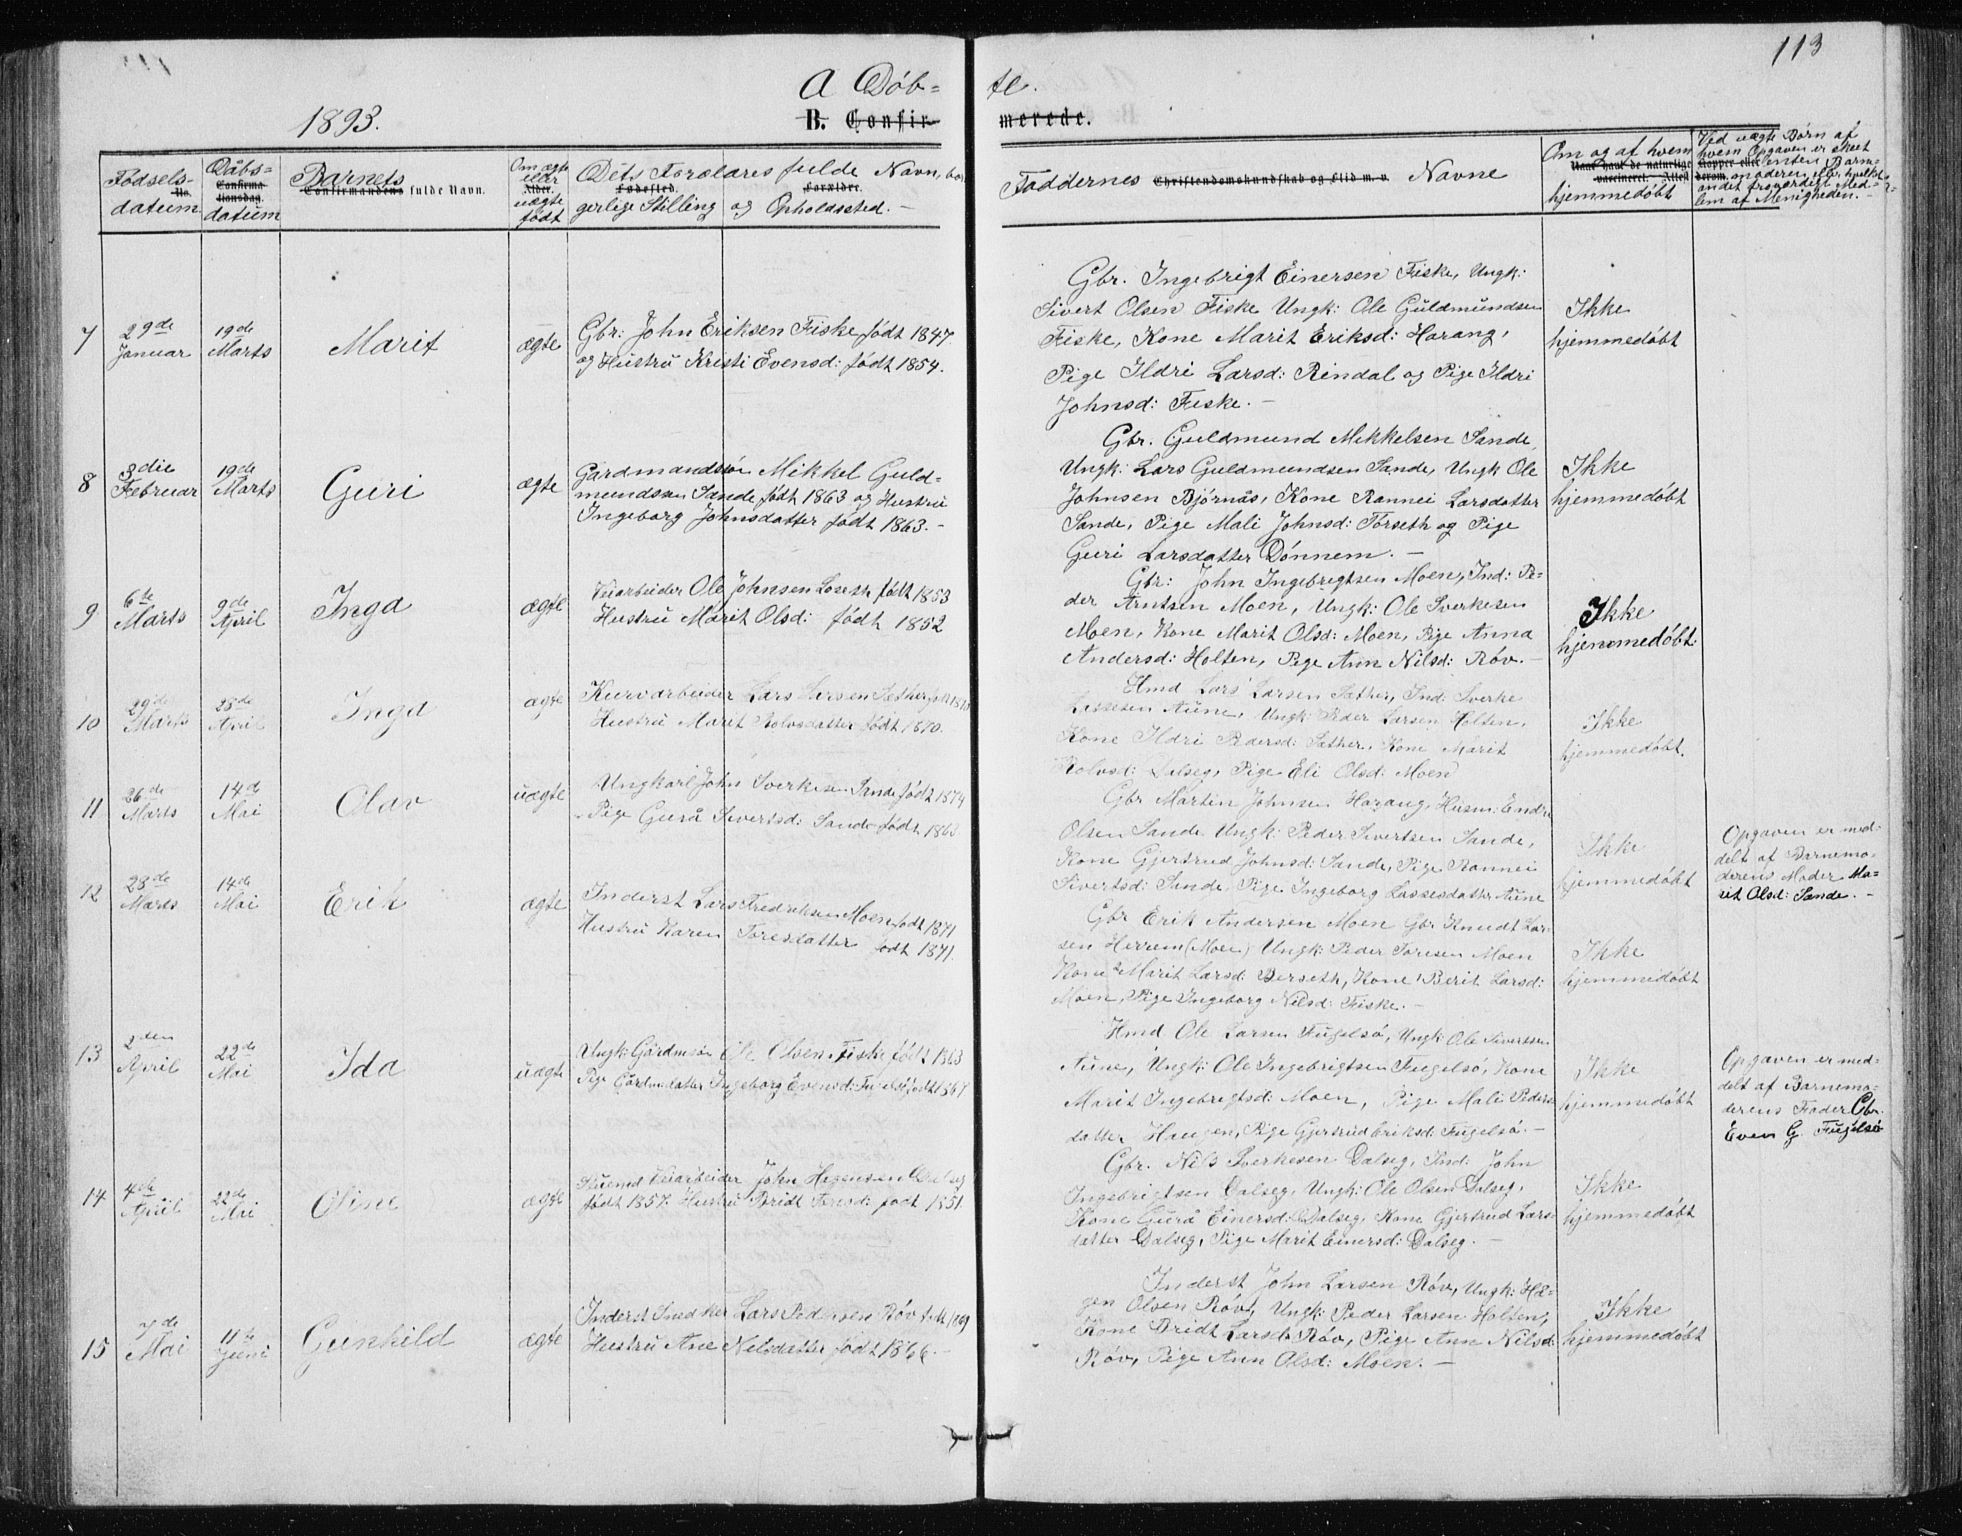 113
A Døb= te.
1893.
B. Confir- merede.
Fødsels-
No.
datum
Daabs-
Confirma
tionsdag.
datum
Barnets
Confirmandens fulde Navn.
Om ægte
eller
Alder.
uægte
født
Dets Forældres fulde Navn, bor
Fødested. Forældre.
gerlige Stilling og Opholdssted. -
Faddernes Christendomskundskab og Flid m. v. Navne
Om og af hvem
Naar hand de naturlige
vaccineret. Attest
hjemmedøbt
Ved uægte Børn af
hvem Opgaven er skeet
Kopper eller enten Barn-
derom. moderen eller hvilket
andet troværdigt Med-
lem af Menigheden. -
7
29de
Januar
19de
Marts
Marit
ægte
Gbr: John Eriksen Fiske født 1847
og Hustru Kristi Evensd: født 1854.
Gbr. Ingebrigt Einersen Fiske, Ungk:
Sivert Olsen Fiske Ungk: Ole Guldmundsen
Fiske, Kone Marit Eriksd: Harang,
Pige Ildri Larsd: Rindal og Pige Ildri
Johnsd: Fiske. -
Ikke
hjemmedøbt
8
3die
Februar
19de
Marts
Guri
ægte
Gardmandssøn Mikkel Guld-
mundsen Sande født 1863 og Hustru
Ingeborg Johnsdatter født 1863. -
Gbr. Guldmund Mikkelsen Sande
Ungk: Lars Guldmundsen Sande, Ungk Ole
Johnsen Bjørnås, Kone Rannei Larsdatter
Sande, Pige Mali Johnsd: Torseth og Pige
Guri Larsdatter Dønnem. -
Ikke
hjemmedøbt
9
6te
Marts
9de
April
Inga
ægte
Veiarbeider Ole Johnsen Loseth født 1853
Hustru Marit Olsd: født 1852
Gbr: John Ingebrigtsen Moen, Ind: Pe-
der Arntsen Moen, Ungk: Ole Sverkesen
Moen, Kone Marit Olsd: Moen, Pige Anna
Andersd: Holten, Pige Ann Nilsd: Røv. -
Ikke
hjemmedøbt.
10
29de
Marts
28de
April
Inga
ægte
Kurvarbeider Lars Larsen Sæther født
Hustru Marit Rolvsdatter født 1870.
Hmd Lars Larsen Sæther, Ind: Sverke
Lassesen Aune, Ungk: Peder Larsen Holten,
Kone Ildri Pedersd: Sæther, Kone Marit
Rolvsd: Dalseg, Pige Eli Olsd: Moen
Ikke
hjemmedøbt.
11
26de
Marts
14de
Mai
Olav
uægte
Ungkarl John Sverkesen Sande født 1874
Pige Gurå Sivertsd: Sande født 1863
Gbr Martin Johnsen Harang, Husm: Endre
Olsen Sande Ungk: Peder Sivertsen Sande,
Kone Gjertrud Johnsd: Sande, Pige Rannei
Sivertsd: Sande, Pige Ingeborg Lassesdatter Aune
Ikke
hjemmedøbt
Opgaven er med-
delt af Barnemo-
derens Moder Ma-
rit Olsd: Sande. -
12
28de
Marts
14de
Mai
Erik
ægte
Inderst Lars Fredriksen Moen født 1871
Hustru Karen Toresdatter født 1871.
Gbr Erik Andersen Moen Gbr Knudt Lar-
sen Herrem (Moen) Ungk: Peder Toresen Moen
Kone Marit Larsd: Berseth, Kone Berit Larsd:
Moen, Pige Ingeborg Nilsd: Fiske. -
Ikke
hjemmedøbt
13
2den
April
22de
Mai
Ida
uægte
Ungk: Gårdmsøn Ole Olsen Fiske født 1863
Pige Gårdmdatter Ingeborg Evensd: Fugelsø født 1867
Hmd Ole Larsen Fugelsø, Ungk Ole Sivertsen
Aune, Ungk: Ole Ingebrigtsen Fugelsø, Kone
Marit Ingebrigtsd: Moen, Pige Mali Peders
datter Haugen, Pige Gjertrud Eriksd: Fugelsø. -
Ikke
hjemmedøbt
Opgaven er med-
delt af Barnemo-
derens Fader Gbr.
Even G. Fugelsø
14
4de
April
22de
Mai
Oline
ægte
Veiarbeider John Hagensen Dalseg
født 1857. Hustru Bridt Toresd: født 1851.
Gbr. Nils Sverkesen Dalseg, Ind: John
Ingebrigtsen Dalseg, Ungk: Ole Olsen Dalseg,
Kone Gurå Einersd: Dalseg, Kone Gjertrud Lars-
datter Dalseg, Pige Marit Einersd: Dalseg. -
Ikke
hjemmedøbt
15
7de
Mai
11te
Juni
Gunhild
ægte
Inderst Snedker Lars Pedersen Røv født 1869
Hustru Ane Nelsdatter født 1866. -
Inderst John Larsen Røv, Ungk: Ha-
gen Olsen Røv, Ungk: Peder Larsen Holten,
Kone Bridt Larsd: Røv, Pige Ann Nilsd:
Røv, Pige Ann Olsd: Moen. -
Ikke
hjemmedøbt